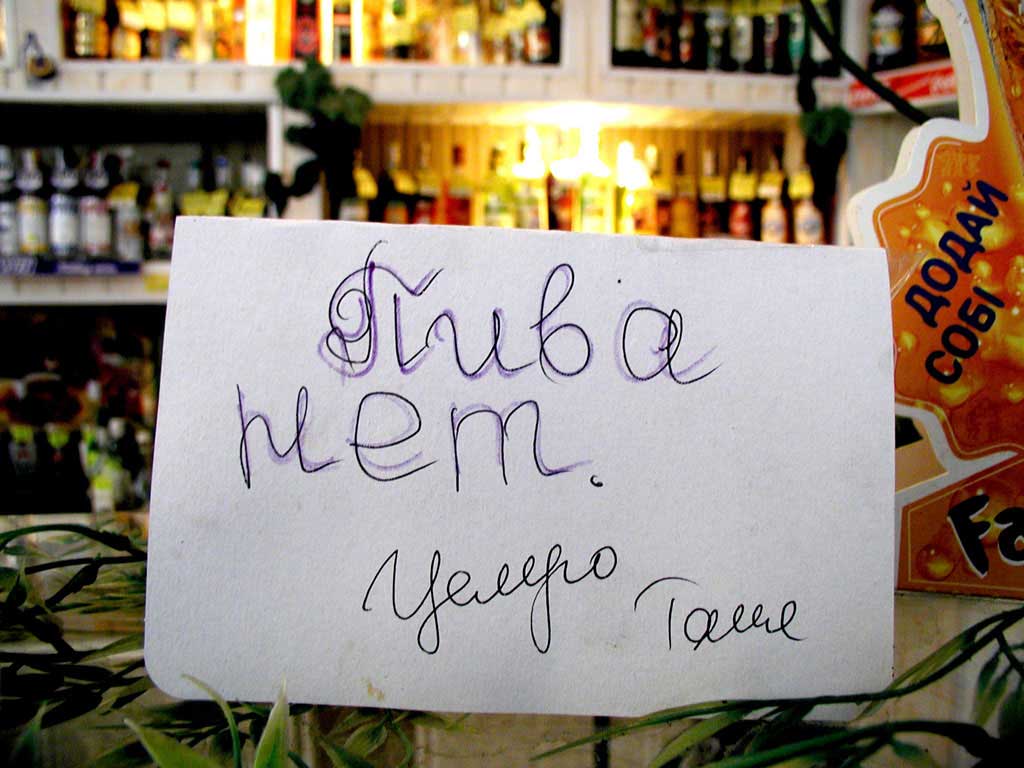 Пива
нет.
Целую
Таше
ДОДАЙ
СОБІ
Fa